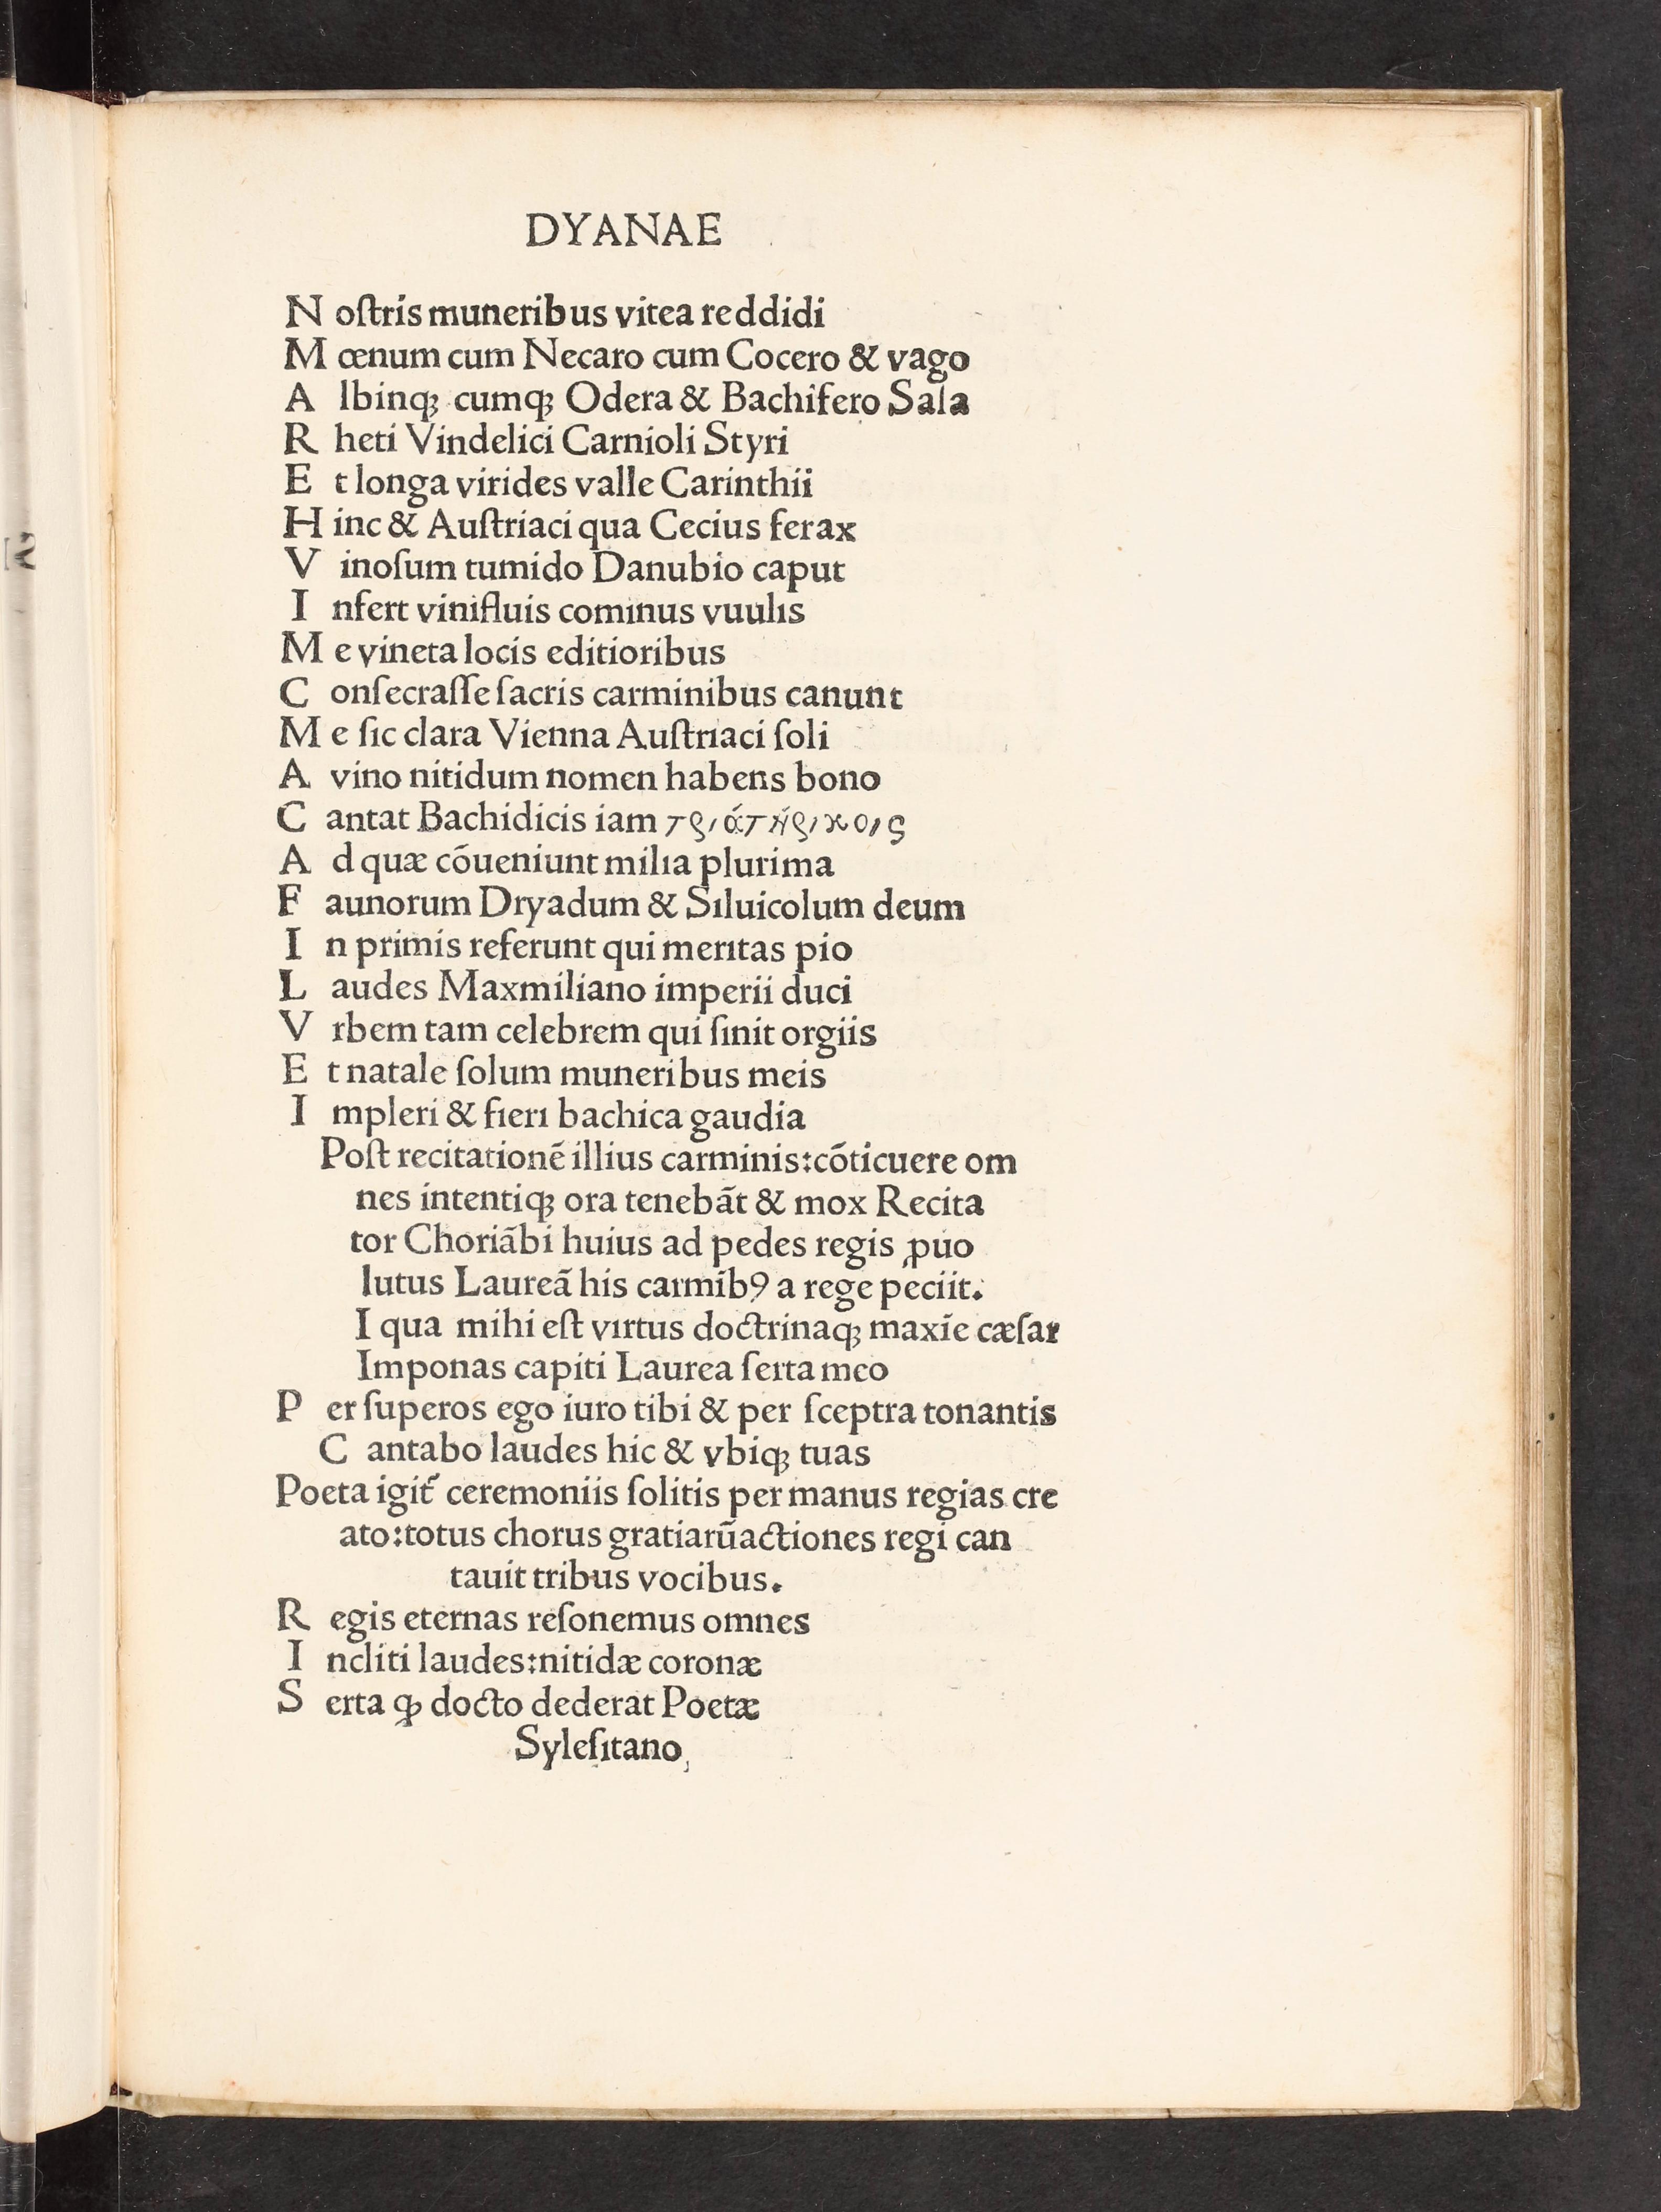 DYANAE
N oſtris muneribus vitea reddidi
M œnum cum Necaro cum Cocero & vago
A lbinqꝫ cumqꝫ Odera & Bachifero Sala
R heti Vindelici Carnioli Styri
E t longa virides valle Carinthii
H inc & Auſtriaci qua Cecius ferax
V inoſum tumido Danubio caput
I nfert vinifluis cominus vuulis
M e vineta locis editioribus
C onſecraſſe ſacris carminibus canunt
M e ſic clara Vienna Auſtriaci ſoli
A vino nitidum nomen habens bono
C antat Bachidicis iam τριάτήρικοις
A d quæ cōueniunt milia plurima
F aunorum Dryadum & Siluicolum deum
I n primis referunt qui meritas pio
L audes Maxmiliano imperii duci
V rbem tam celebrem qui ſinit orgiis
E t natale ſolum muneribus meis
I mpleri & fieri bachica gaudia
Poſt recitationē illius carminis:cōticuere om
nes intentiqꝫ ora tenebāt & mox Recita
tor Choriābi huius ad pedes regis ꝓuo
lutus Laureā his carmīb9 a rege peciit.
I qua mihi eſt virtus doctrinaqꝫ maxīe cæſar
Imponas capiti Laurea ſerta meo
P er ſuperos ego iuro tibi & per ſceptra tonantis
C antabo laudes hic & vbiqꝫ tuas
Poeta igit᷑ ceremoniis ſolitis per manus regias cre
ato:totus chorus gratiarūactiones regi can
tauit tribus vocibus.
R egis eternas reſonemus omnes
I ncliti laudes:nitidæ coronæ
S erta ꝙ docto dederat Poetæ
Syleſitano,